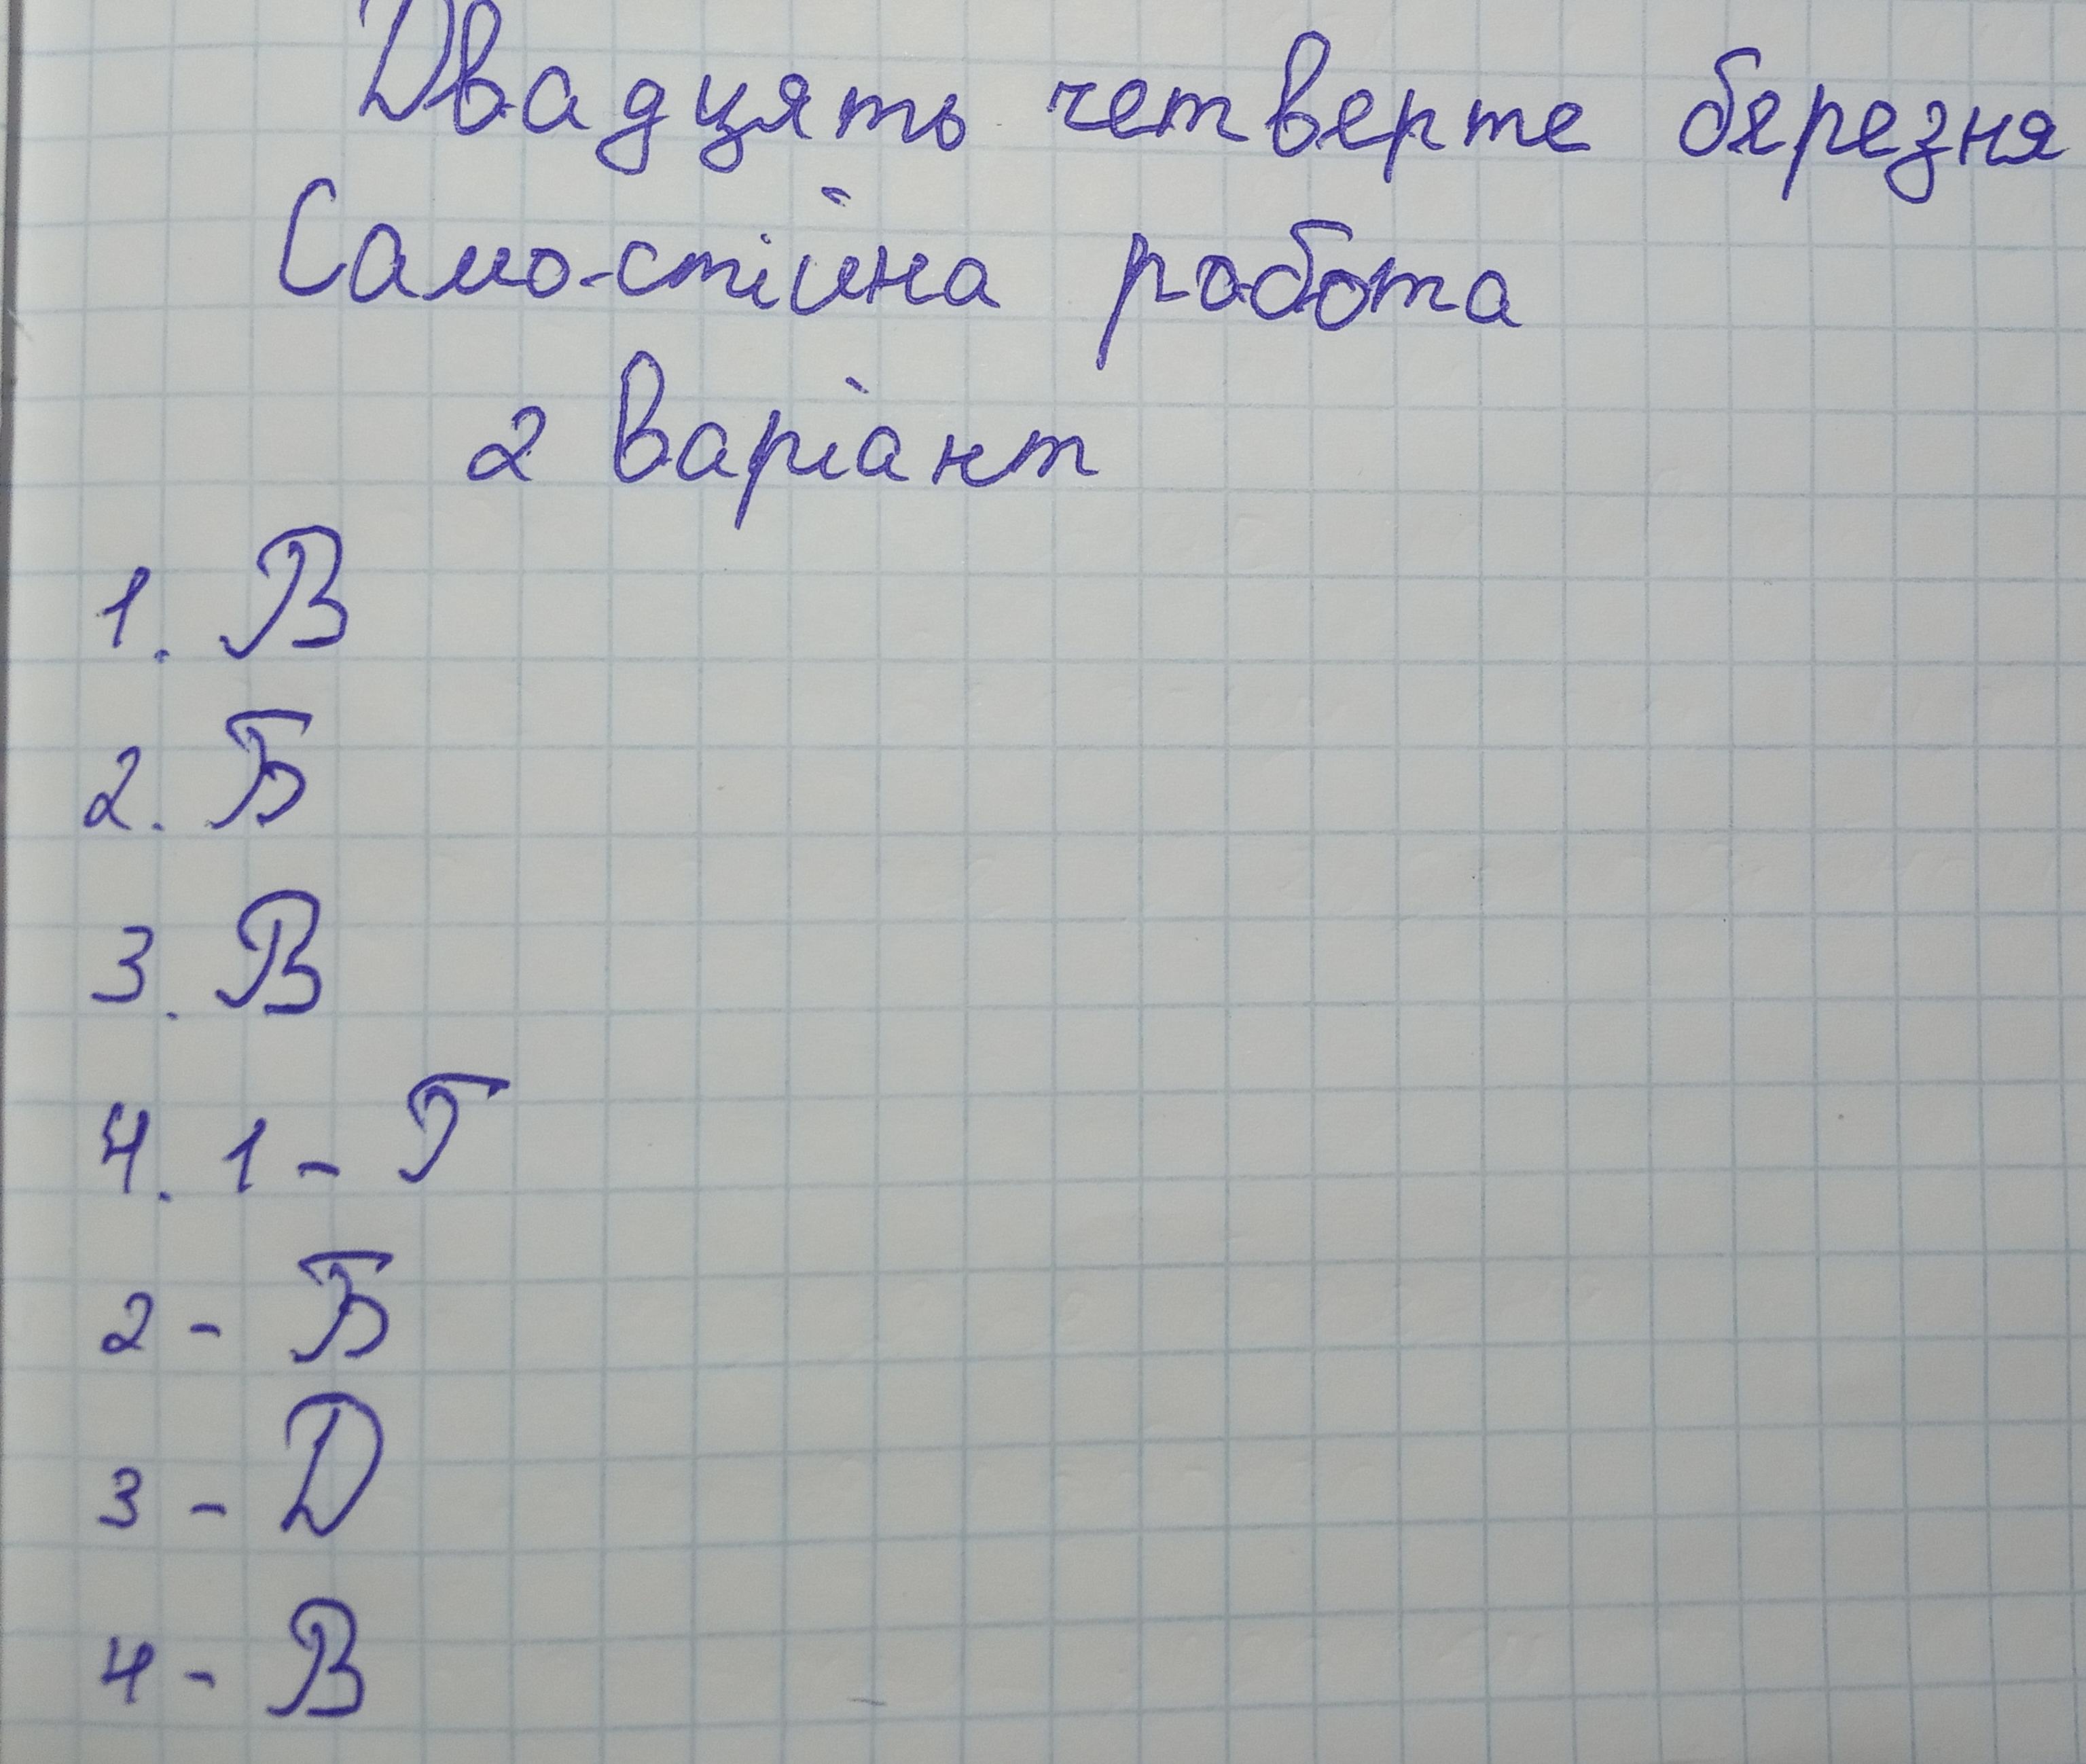 Двадцять четверте березня
Самостійна робота
2 варіант
1. В
2. Б
3. В
4. 1 - Г
2 - Б
3 - Д
4 - В